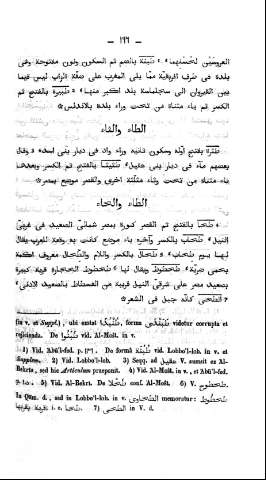 — ١٩٦ —
العروسين لحسنهما ۞ طُبْنَة بالضم ثم السكون ونون مفتوحة وهى
بلدة فى طرف افريقية ممّا يلى المغرب على ضفة الزاب ليس فيما
بين القيروان الى سجلماسة بلد اكبر منها ۞ طَبِيرَة بالفتح ثم
الكسر ثم ياء مثناة من تحت وراء بلدة بالاندلس ۞
الطاء والثاء
طَثْرَة بفتح اوله وسكون ثانيه وراء واد فى ديار بنى اسد ۞ وقال
بعضهم ماء فى ديار بنى عقيل ۞ طَثِيثَا بالفتح ثم الكسر وبعدها
ياء مثناة من تحت وثاء مثلثة اخرى والقصر موضع بمصر ۞
الطاء والحاء
طَحَا بالفتح ثم القصر كورة بمصر شمالىّ الصعيد فى غربىّ
النيل ۞ طِحَاب بالكسر وآخره باء موضع كانت به وقعة للعرب يقال
لها يوم طحاب ۞ طِحَال بالكسر واللام والطحال معروف اكمة
بحمى ضريّة ۞ طَحْطُوط ويقال لها طحطوط الحجارة قرية كبيرة
بصعيد مصر على شرقىّ النيل قريبة من الفسطاط بالصعيد الادنى ۞
الطَّحِىّ كانه جبل فى الشعر ۞
(in v. et Suppl.), ubi exstat forma videtur corrupta et
rejicienda. De vid. Al-Mošt. in v.
1) Vid. Abû'l-fed. p. De formâ طُبْنَة vid. Lobbo'l-loh. in v. et
Supplem. 2) Vid. Lobbo'l-loh. 3) Seqq. ad عقيل V. sumsit ex Al-
Bekrio, sed hic Articulum praeponit. 4) Vid. Al-Mošt. in v., et Abû'l-fed.
5) Vid. Al-Bekrî. De conf. Al-Mošt. 6) V.
In Qam. d., sed in Lobbo'l-loh. in v. memoratur:
7) الطحى in V. d.